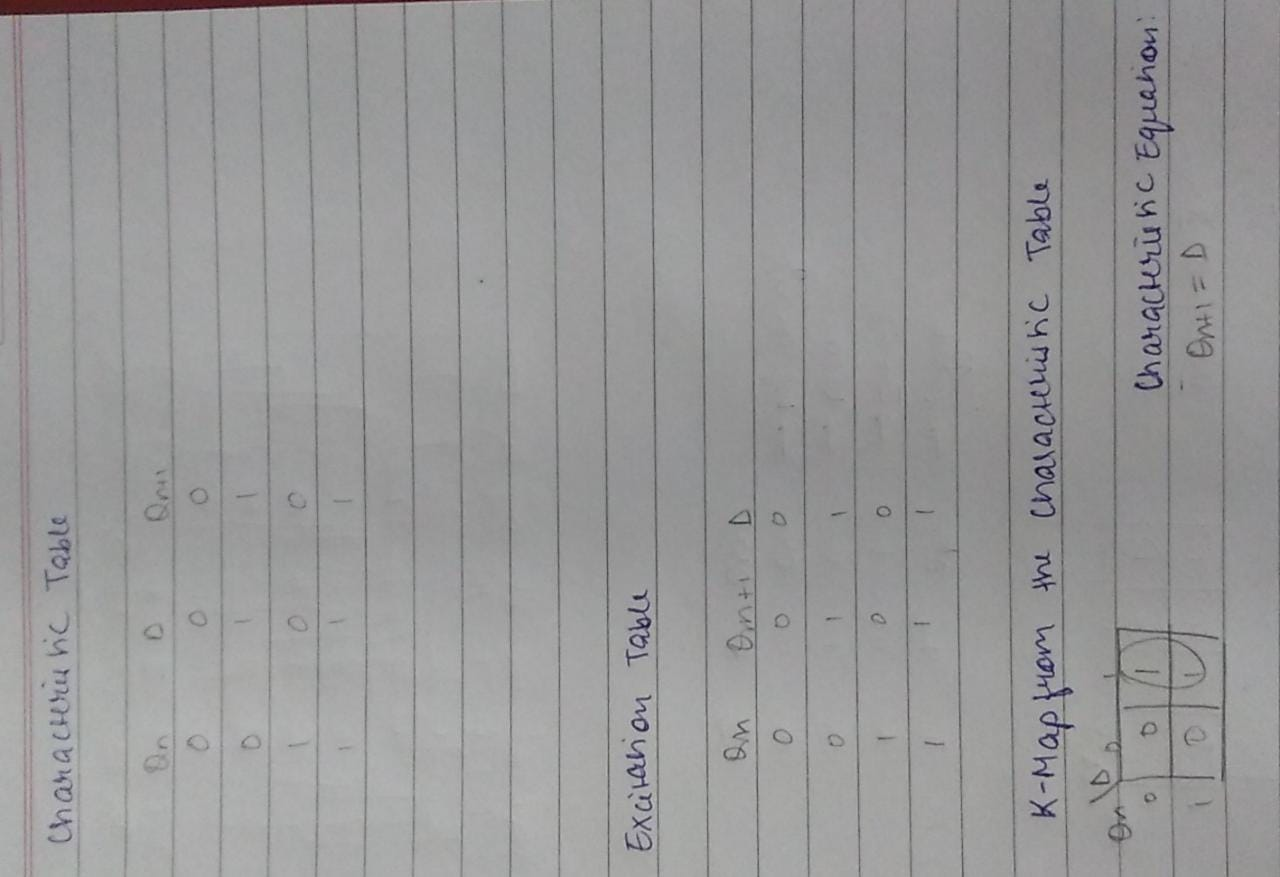 Characteristic Table
Qn D Qn+1
0 0 0
0 1 1
1 0 0
1 1 1
Excitation Table
Qn Qn+1 D
0 0 0
0 1 1
1 0 0
1 1 1
K-Map from the Characteristic Table
Qn \ D 0 1
0 0 1
1 0 1
Characteristic Equation:
Qn+1 = D